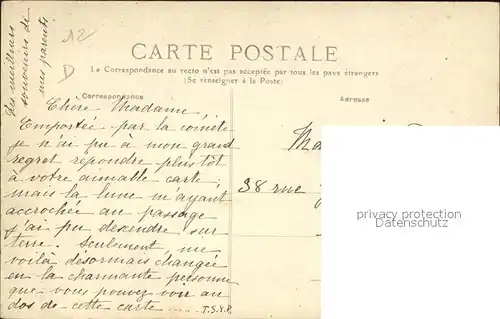 12
D
Les meilleurs
souvenirs de
mes parents.
CARTE POSTALE
La Correspondance au recto n'est pas acceptée par tous les pays étrangers
(Se renseigner à la Poste)
Correspondance
Adresse
Chère Madame,
Emportée par la comète
je n'ai pu à mon grand
regret répondre plus tôt
à votre aimable carte;
mais la lune m'ayant
accrochée au passage
j'ai pu descendre sur
terre. Seulement, me
voilà désormais changée
en la charmante personne
que vous pouvez voir au
dos de cette carte .... T.S.V.P.
Ma
38 rue
privacy protection